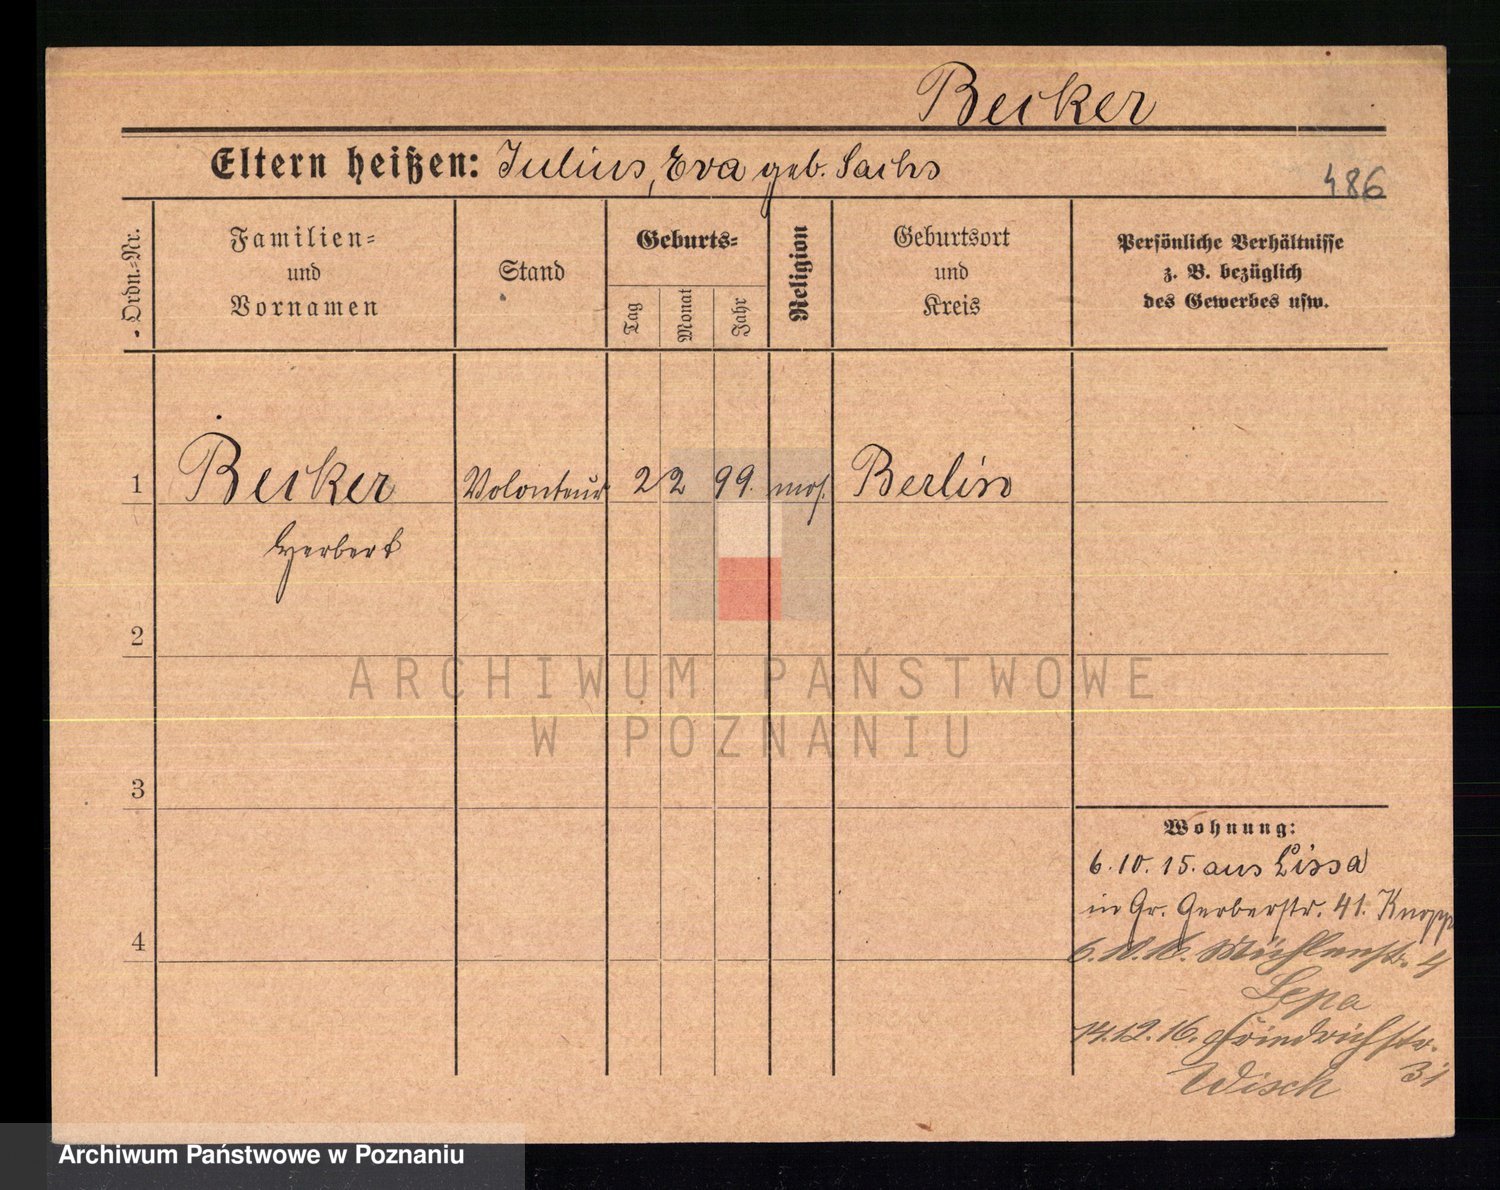 Becker
Eltern heißen: Julius, Eva geb. Sachs
486
Ordn.-Nr.
Familien- und Vornamen
Stand
Geburts-
Tag
Monat
Jahr
Religion
Geburtsort und Kreis
Persönliche Verhältnisse
z. B. bezüglich
des Gewerbes usw.
1 Becker Volonteur 2 2 99. mos. Berlin
Herbert
2
3
4
Wohnung:
6.10.15. aus Lissa
in Gr. Gerberstr. 41. Knopp
6.10.16. Mühlenstr. 4
Lepa
14.12.16. Friedrichstr.
31
Wisch
ARCHIWUM PAŃSTWOWE
W POZNANIU
Archiwum Państwowe w Poznaniu